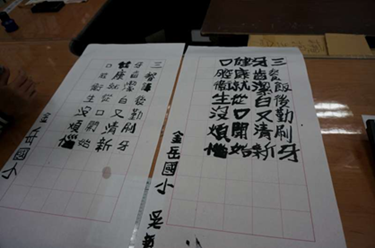 三餐飯後勤刷牙
牙齒潔白又清新
健康就從口開始
口腔衛生沒煩惱
金岳國小 吳
三 後勤刷牙
牙齒潔白又清新
健康就從口開始
口腔衛生沒煩惱
金岳國小